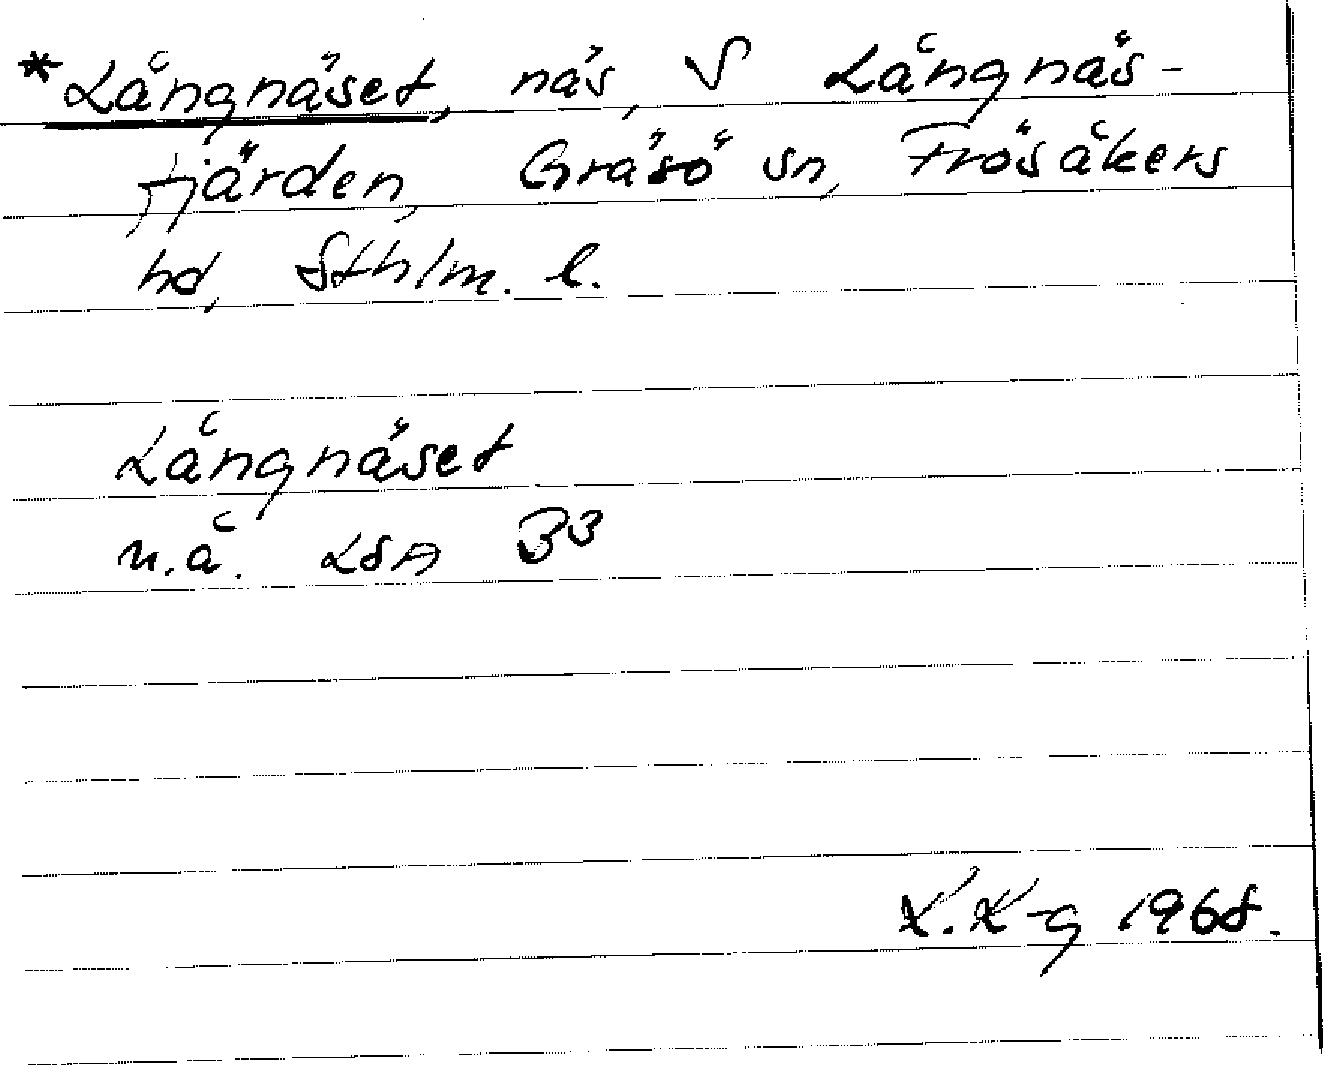 *Långnäset, näs, S Långnäs-
fjärden, Gräsö sn, Frösåkers
hd, Sthlm. l.
Långnäset
u.å. LSA B3
K.K-g 1968.